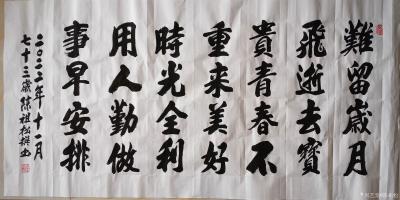 難留歲月
飛逝去寶
貴青春不
重來美好
時光全利
用人勤做
事早安排
二〇二二年十一月
七十三歲陈祖松撰书